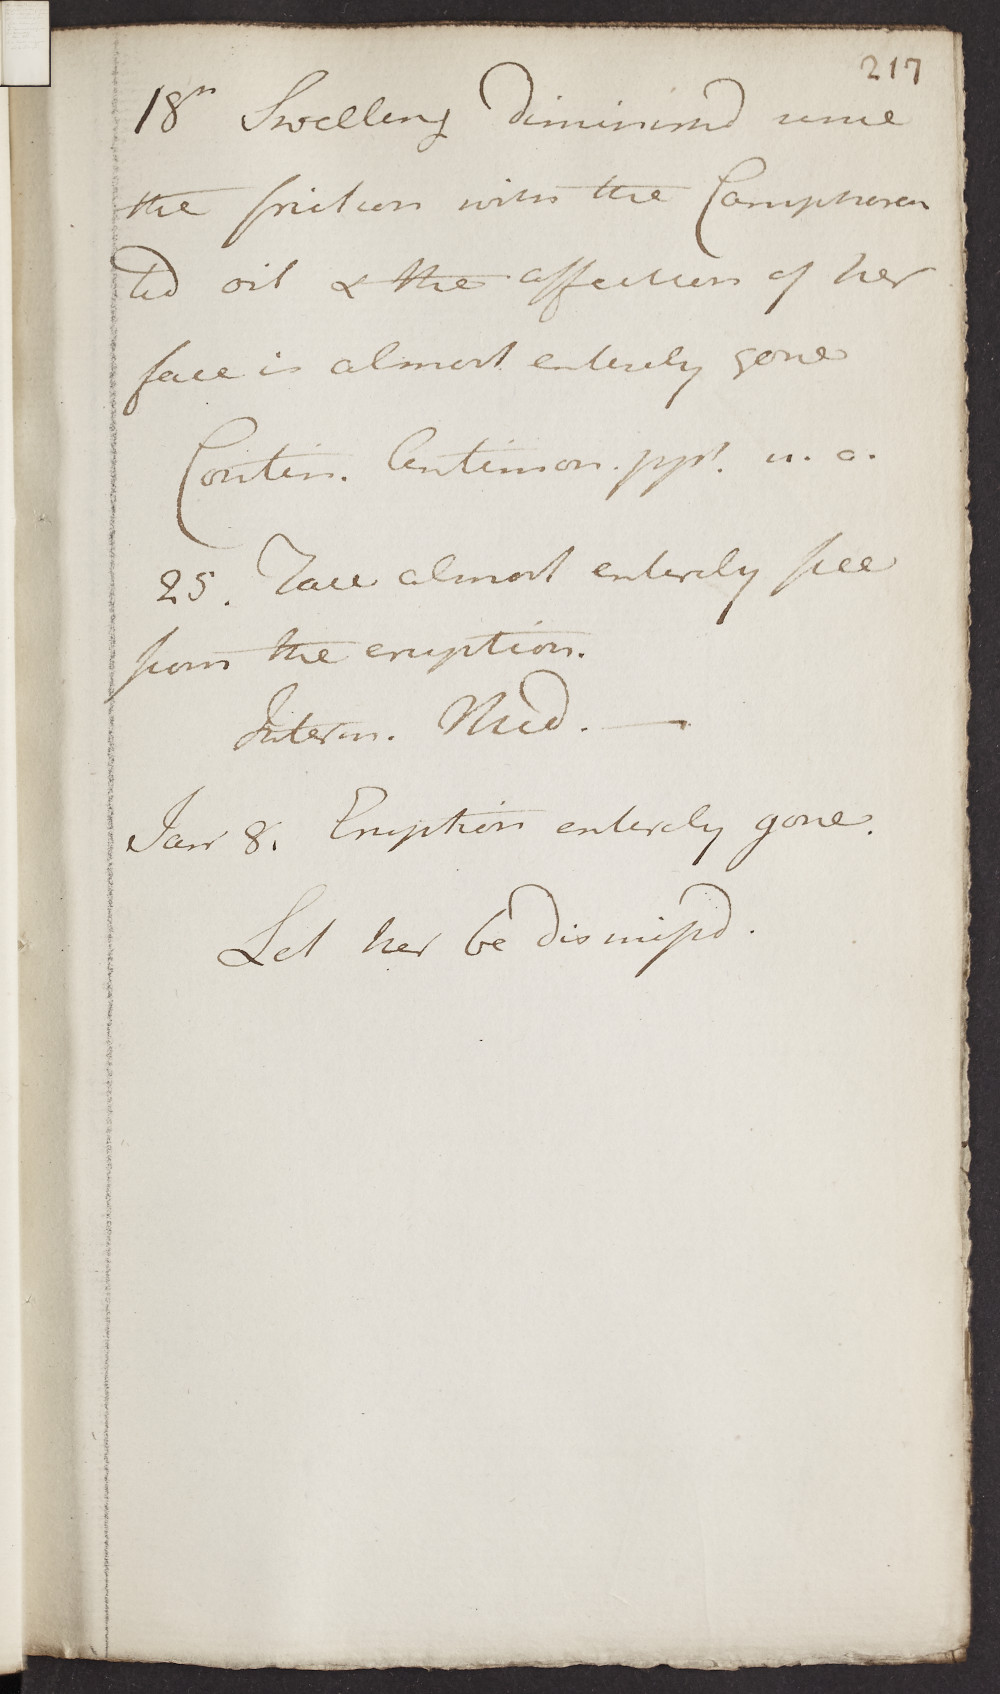 217
18th Swelling diminishd since
the friction with the Camphora
ted oil & the affection of her
face is almost entirely gone
Contin. Antimon. ppt. u. a.
25. Face almost entirely free
from the eruption.
Interm. Med. —
Jan 8. Eruption entirely gone.
Let her be dismissd.